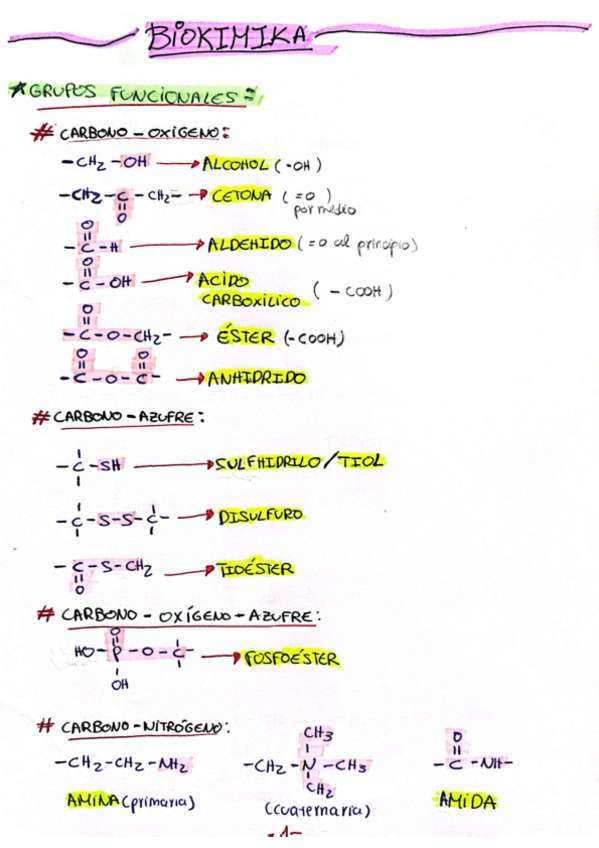 BIOKIMIKA
*GRUPOS FUNCIONALES:
# CARBONO-OXÍGENO:
-CH2-OH → ALCOHOL (-OH)
-CH2-C-CH2- → CETONA (=O)
O
por medio
O
-C-H → ALDEHIDO (=O al principio)
O
-C-OH → ACIDO
CARBOXILICO (-COOH)
O
-C-O-CH2- → ÉSTER (-COOH)
O O
-C-O-C- → ANHIDRIDO
# CARBONO-AZUFRE:
-C-SH → SULFHIDRILO/TIOL
-C-S-S-C- → DISULFURO
-C-S-CH2 → TIOÉSTER
O
# CARBONO-OXÍGENO-AZUFRE:
O
HO-P-O-C- → FOSFOÉSTER
OH
# CARBONO-NITRÓGENO:
CH3 O
-CH2-CH2-NH2 -CH2-N-CH3 -C-NH-
CH2
AMINA (primaria) (cuaternaria) AMIDA
-1-